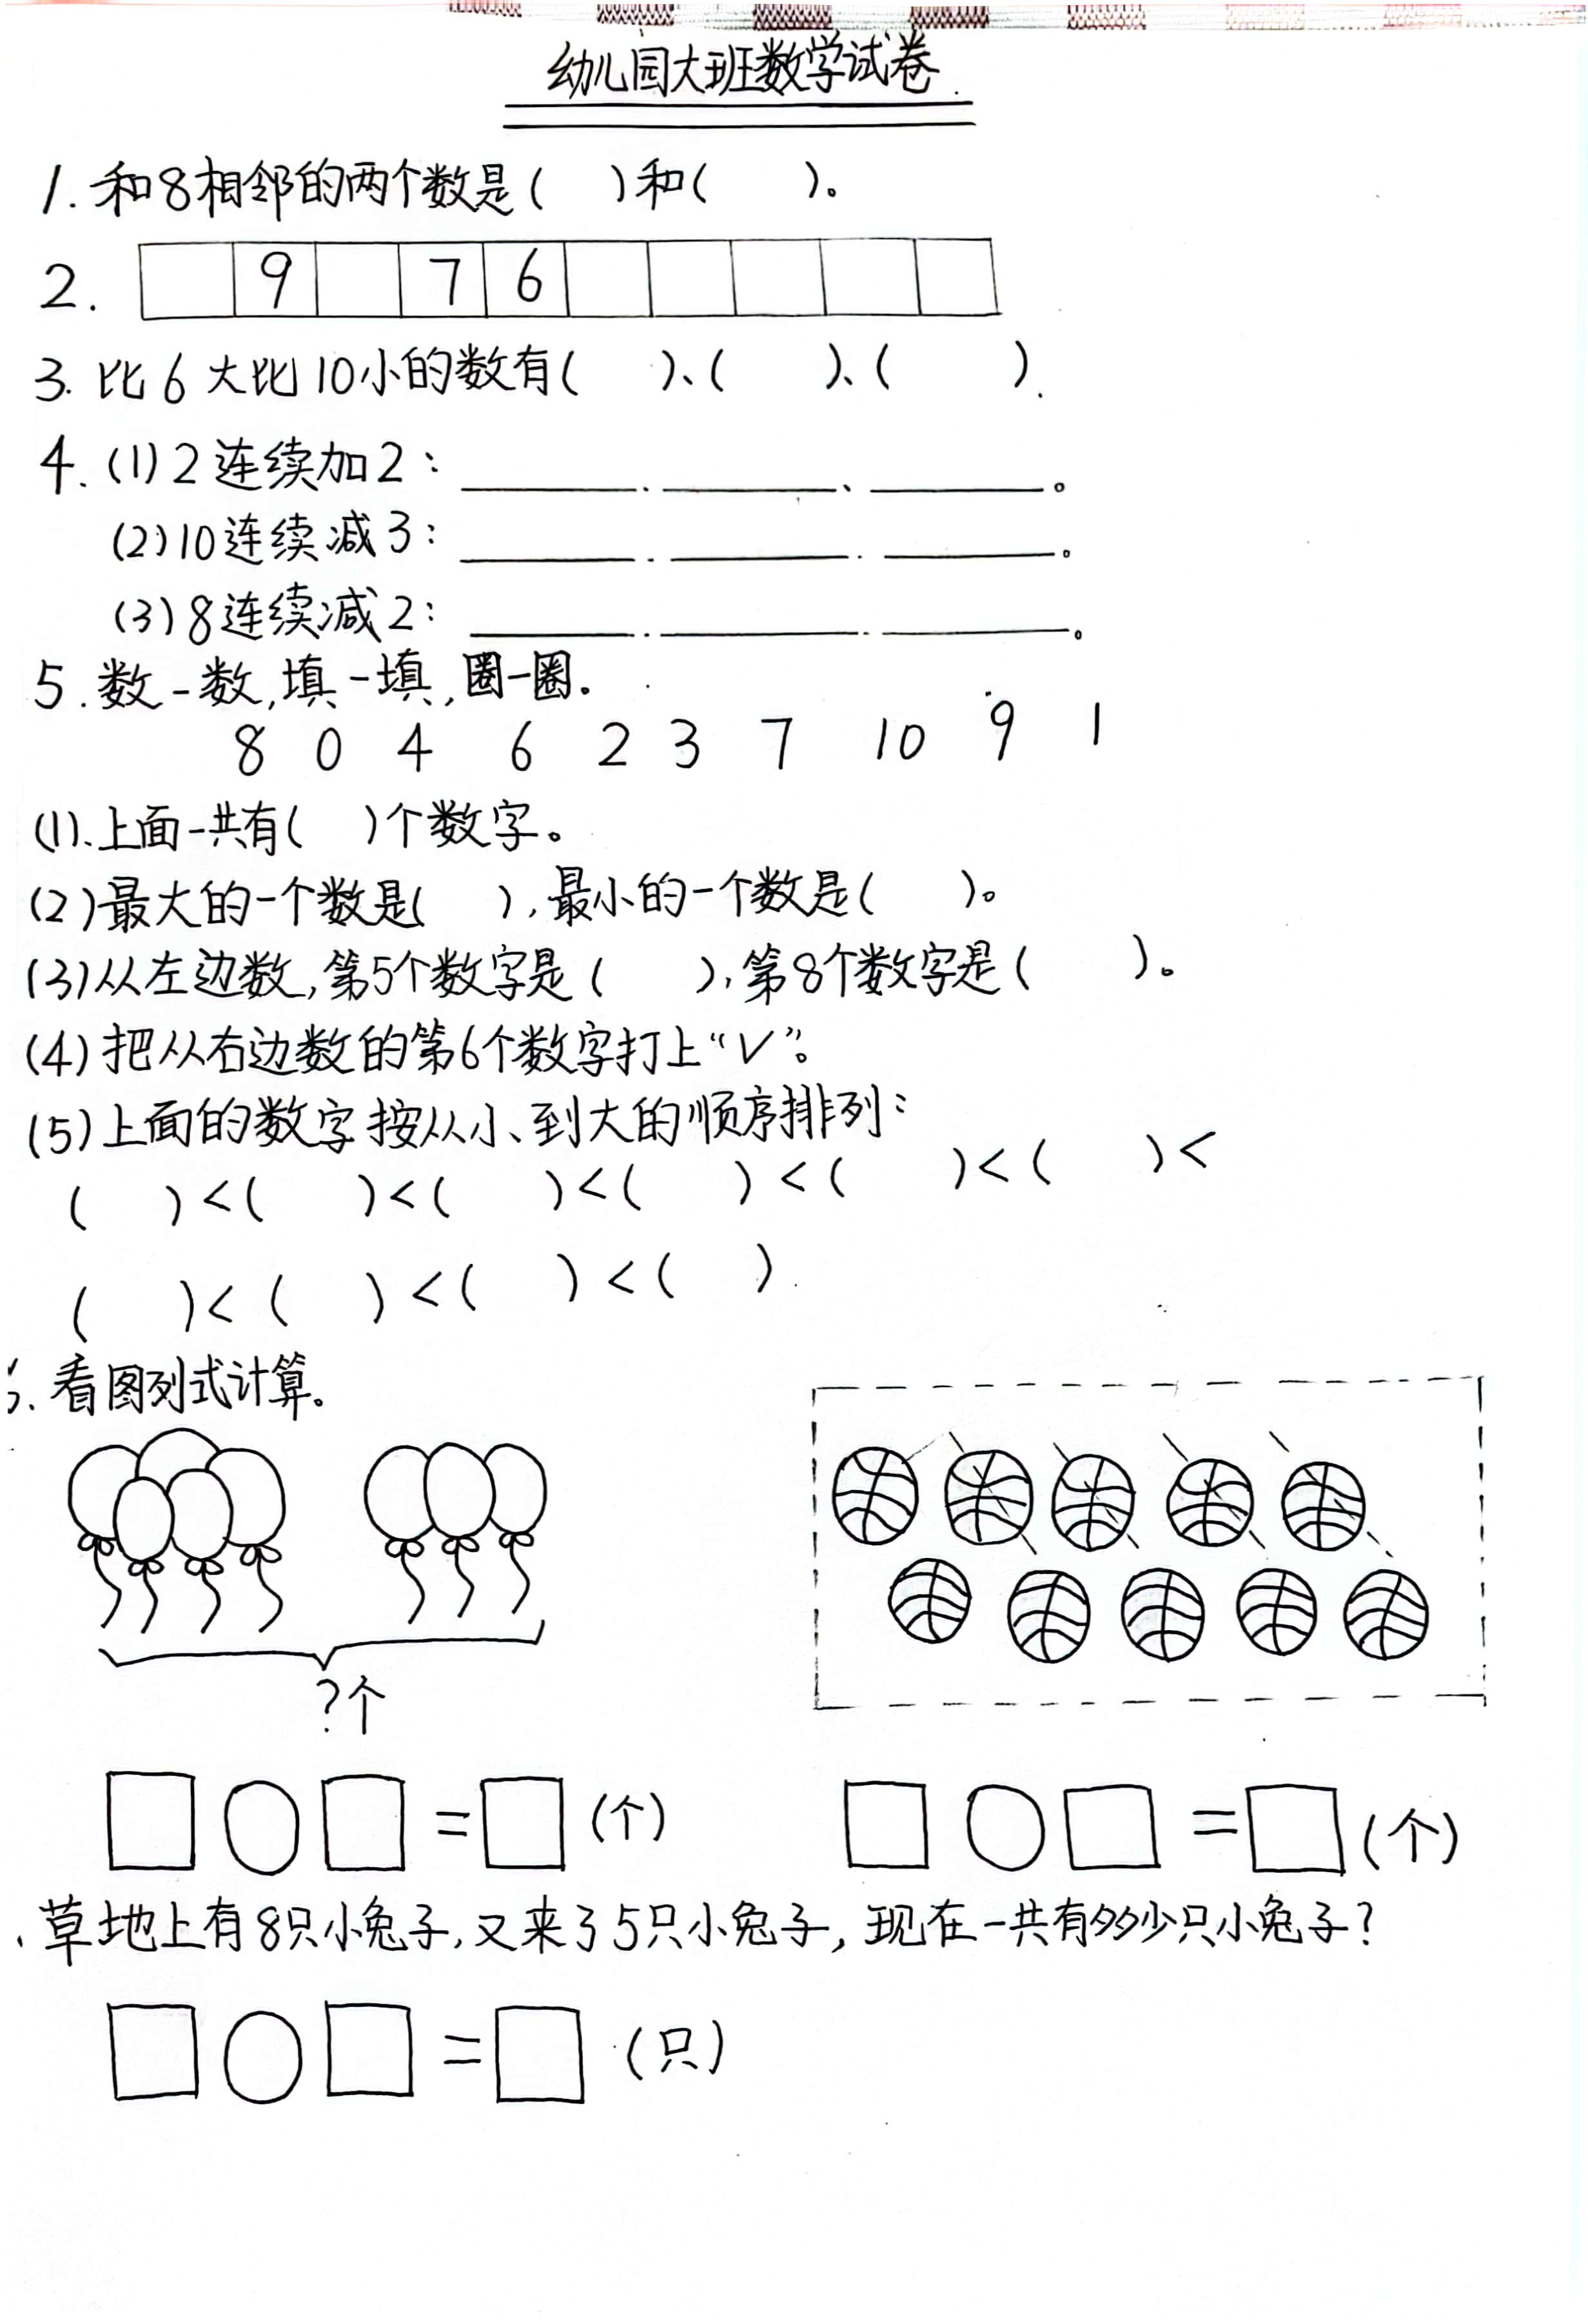 幼儿园大班数学试卷
1. 和8相邻的两个数是(  )和(  )。
2. 9 7 6
3. 比6大比10小的数有(  )、(  )、(  ).
4. (1) 2连续加2: ______、______、______。
(2) 10连续减3: ______、______、______。
(3) 8连续减2: ______、______、______。
5. 数一数,填一填,圈一圈.
8 0 4 6 2 3 7 10 9 1
(1).上面一共有(  )个数字。
(2)最大的一个数是(  ),最小的一个数是(  )。
(3)从左边数,第5个数字是(  ),第8个数字是(  )。
(4)把从右边数的第6个数字打上“√”。
(5)上面的数字按从小、到大的顺序排列:
(  )<(  )<(  )<(  )<(  )<(  )<
(  )<(  )<(  )<(  ).
、看图列式计算。
?个
= (个) = (个)
、草地上有8只小兔子,又来了5只小兔子,现在一共有多少只小兔子?
= (只)